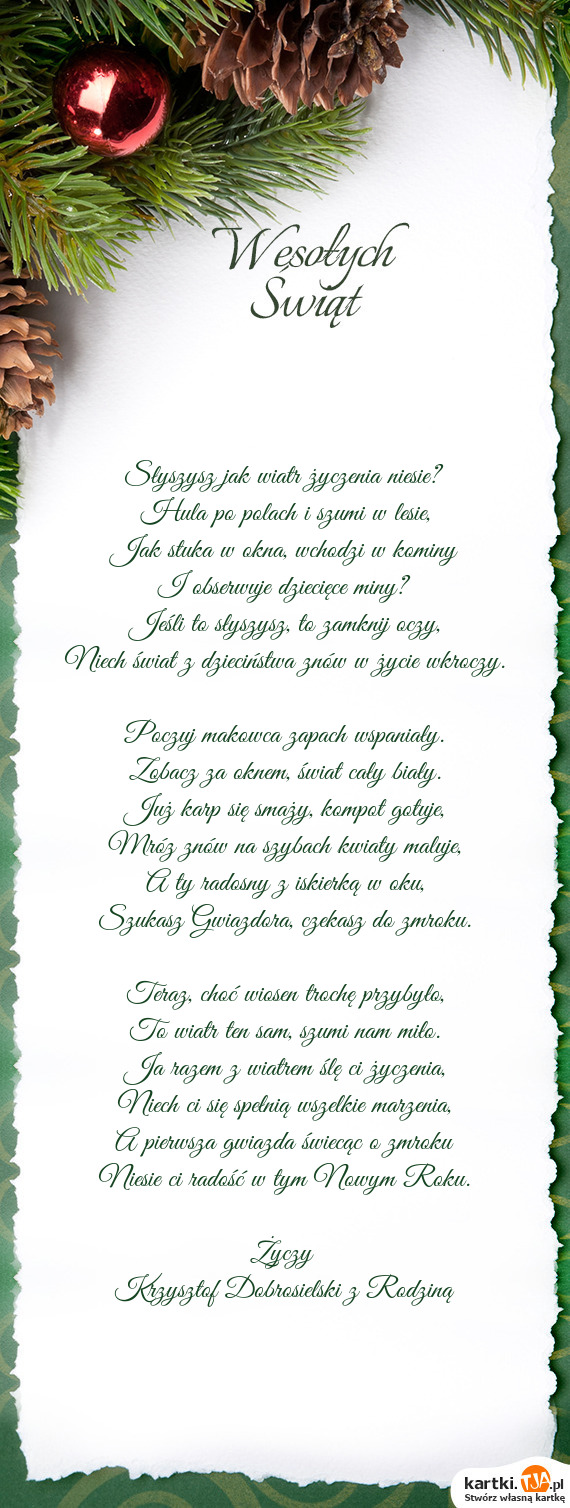 Wesołych
Świąt
Słyszysz jak wiatr życzenia niesie?
Hula po polach i szumi w lesie,
Jak stuka w okna, wchodzi w kominy
I obserwuje dziecięce miny?
Jeśli to słyszysz, to zamknij oczy,
Niech świat z dzieciństwa znów w życie wkroczy.
Poczuj makowca zapach wspaniały.
Zobacz za oknem, świat cały biały.
Już karp się smaży, kompot gotuje,
Mróz znów na szybach kwiaty maluje,
A ty radosny z iskierką w oku,
Szukasz Gwiazdora, czekasz do zmroku.
Teraz, choć wiosen trochę przybyło,
To wiatr ten sam, szumi nam miło.
Ja razem z wiatrem ślę ci życzenia,
Niech ci się spełnią wszelkie marzenia,
A pierwsza gwiazda świecąc o zmroku
Niesie ci radość w tym Nowym Roku.
Życzy
Krzysztof Dobrosielski z Rodziną
kartki.TJA.pl
Stwórz własną kartkę